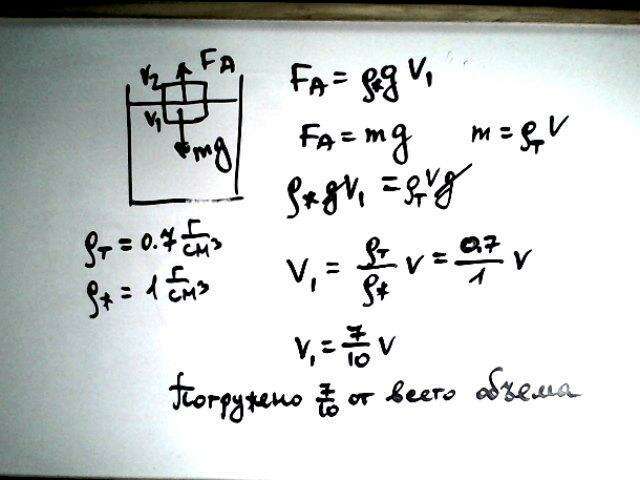 V₂ F_A
V₁
mg
F_A = ρ_ж g V₁
F_A = mg m = ρ_T V
ρ_ж g V₁ = ρ_T V g
ρ_T = 0.7 г/см³
ρ_ж = 1 г/см³
V₁ = ρ_T/ρ_ж V = 0.7/1 V
V₁ = 7/10 V
Погружено 7/10 от всего объема